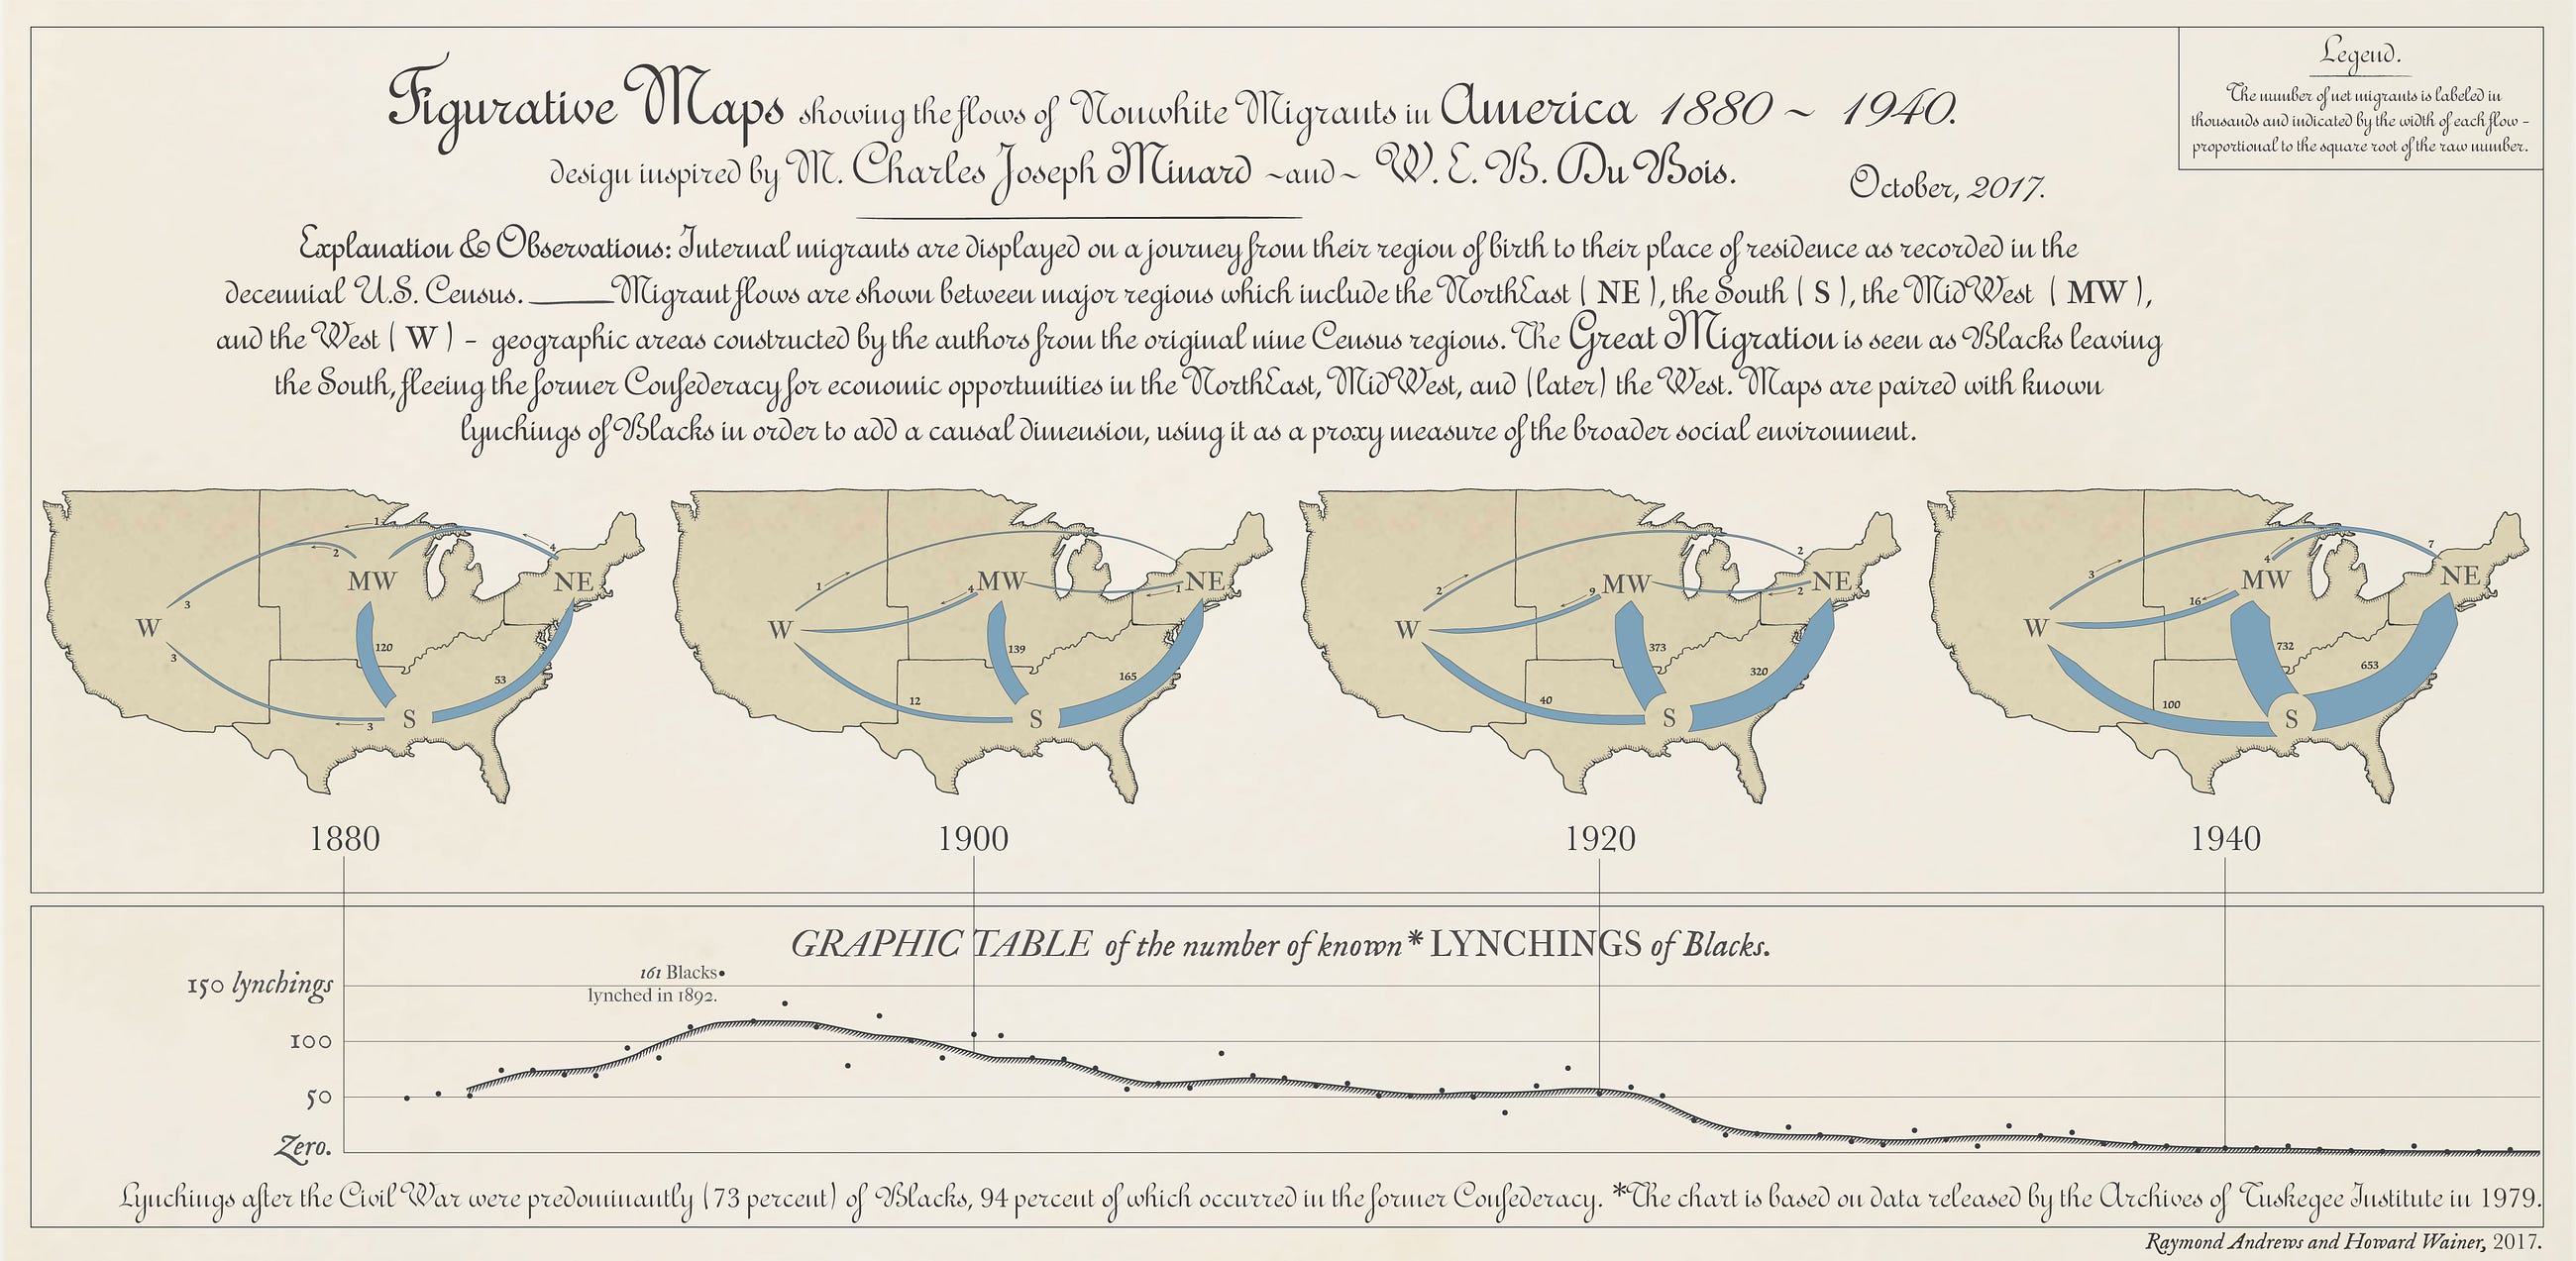 Figurative Maps showing the flows of Nonwhite Migrants in America 1880 ~ 1940.
design inspired by M. Charles Joseph Minard ~and~ W. E. B. Du Bois.
October, 2017.
Legend.
The number of net migrants is labeled in
thousands and indicated by the width of each flow -
proportional to the square root of the raw number.
Explanation & Observations: Internal migrants are displayed on a journey from their region of birth to their place of residence as recorded in the
decennial U.S. Census. ____Migrant flows are shown between major regions which include the NorthEast ( NE ), the South ( S ), the MidWest ( MW ),
and the West ( W ) - geographic areas constructed by the authors from the original nine Census regions. The Great Migration is seen as Blacks leaving
the South, fleeing the former Confederacy for economic opportunities in the NorthEast, MidWest, and (later) the West. Maps are paired with known
lynchings of Blacks in order to add a causal dimension, using it as a proxy measure of the broader social environment.
1
2
4
MW
NE
3
W
3
120
53
S
3
1880
MW
NE
1
4
1
W
139
165
12
S
1900
2
MW
NE
2
9
2
W
373
320
40
S
1920
7
4
MW
NE
3
16
W
732
653
100
S
1940
GRAPHIC TABLE of the number of known* LYNCHINGS of Blacks.
161 Blacks
lynched in 1892.
150 lynchings
100
50
Zero.
Lynchings after the Civil War were predominantly (73 percent) of Blacks, 94 percent of which occurred in the former Confederacy. *The chart is based on data released by the Archives of Tuskegee Institute in 1979.
Raymond Andrews and Howard Wainer, 2017.